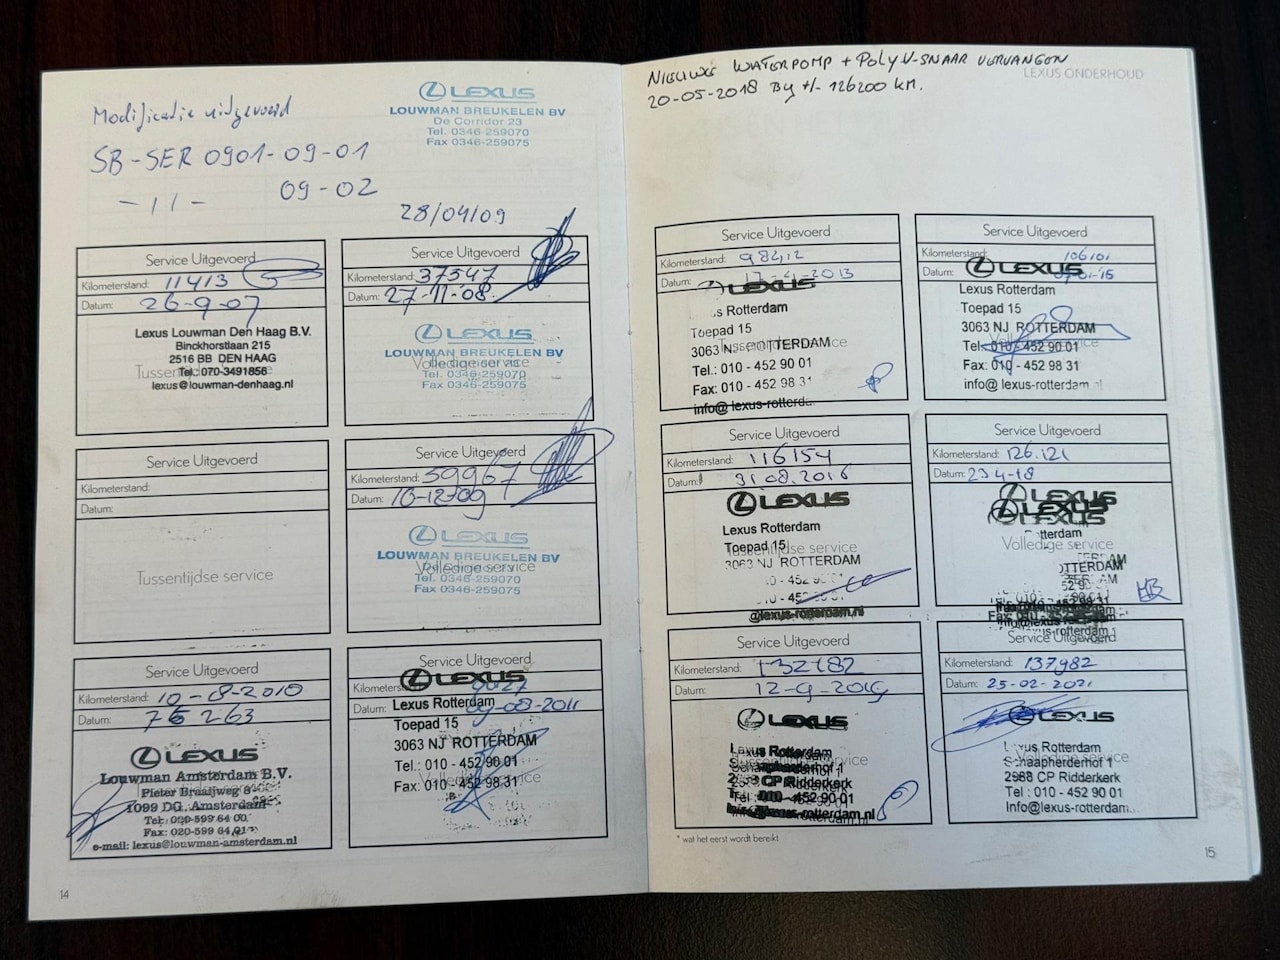 Modificatie uitgevoerd
SB-SER 0901-09-01
-11- 09-02
28/04/09
LEXUS
LOUWMAN BREUKELEN BV
De Corridor 23
Tel. 0346-259070
Fax 0346-259075
Service Uitgevoerd
Kilometerstand: 11413
Datum: 26-9-07
Lexus Louwman Den Haag B.V.
Binckhorstlaan 215
2516 BB DEN HAAG
Tussentijdse service
Tel.: 070-3491856
lexus@louwman-denhaag.nl
Service Uitgevoerd
Kilometerstand: 37547
Datum: 27-11-08.
LEXUS
LOUWMAN BREUKELEN BV
Volledige service
Tel. 0346-259070
Fax 0346-259075
Service Uitgevoerd
Kilometerstand:
Datum:
Tussentijdse service
Service Uitgevoerd
Kilometerstand: 59967
Datum: 10-12-09
LEXUS
LOUWMAN BREUKELEN BV
Volledige service
Tel. 0346-259070
Fax 0346-259075
Service Uitgevoerd
Kilometerstand: 10-8-2010
Datum: 76263
LEXUS
Louwman Amsterdam B.V.
Pieter Braaijweg
1099 DG, Amsterdam
Tel: 020-599 64 00
Fax: 020-599 64 01
e-mail: lexus@louwman-amsterdam.nl
Service Uitgevoerd
Kilometerstand:
LEXUS
Datum: 09-08-2011
Lexus Rotterdam
Toepad 15
3063 NJ ROTTERDAM
Tel.: 010 - 452 90 01
Volledige service
Fax: 010 - 452 98 31
14
NIEUWE WATERPOMP + POLY V-SNAAR VERVANGEN
20-05-2018 By +/- 126200 KM.
LEXUS ONDERHOUD
Service Uitgevoerd
Kilometerstand: 98412
Datum: 17-4-2013
LEXUS
Lexus Rotterdam
Toepad 15
3063 NJ ROTTERDAM
Tussentijdse service
Tel.: 010 - 452 90 01
Fax: 010 - 452 98 31
info@lexus-rotterda
Service Uitgevoerd
Kilometerstand: 106101
Datum: 07-01-'15
LEXUS
Lexus Rotterdam
Toepad 15
3063 NJ ROTTERDAM
Volledige service
Tel.: 010 - 452 90 01
Fax: 010 - 452 98 31
info@lexus-rotterdam.nl
Service Uitgevoerd
Kilometerstand: 116154
Datum: 31.08.2016
LEXUS
Lexus Rotterdam
Toepad 15
Tussentijdse service
3063 NJ ROTTERDAM
10 - 452 90 01
10 - 452
@lexus-rotterdam.nl
Service Uitgevoerd
Kilometerstand: 126.121
Datum: 23-4-18
LEXUS
LEXUS
tterdam
Volledige service
OTTERDAM
HB
Service Uitgevoerd
Kilometerstand: 132182
Datum: 12-9-2019
LEXUS
Lexus Rotterdam
Schaapherderhof 1
Tussentijdse service
CP Ridderkerk
Tel: 010 - 452 90 01
lexus-rotterdam.nl
Service Uitgevoerd
Kilometerstand: 137982
Datum: 25-02-2021
LEXUS
Lexus Rotterdam
Schaapherderhof 1
Volledige service
2988 CP Ridderkerk
Tel : 010 - 452 90 01
Info@lexus-rotterdam
* wat het eerst wordt bereikt
15